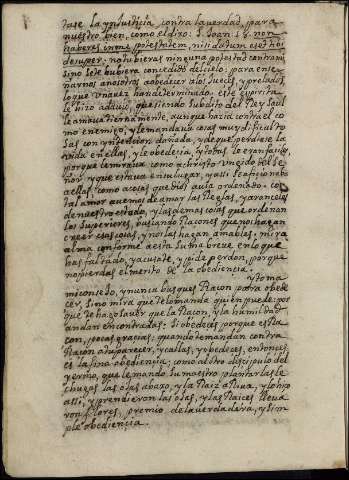 tase la ynjusticia contra la verdad, para
nuestro bien, como el dixo: S. Joan. 18. non
haberes in me potestatem, nisi datum eset tibi
desuper. no tubieras ninguna potestad contra mi,
sino se te bubiera concedido del cielo: para ense-
ñarnos a nosotros a obedecer a los Jueces, y prelados,
lo que una vez han determinado. este espiritu
le hizo a david, que siendo subdito del Rey Saul
le amava tiernamente, aunque hacia contra el co-
mo enemigo, y le mandava cosas muy dificulto-
sas con yntencion dañada, y de que perdiese la
vida en ellas, y le obedecia, y todas le eran faciles,
porque le mirava como a christo ungido del Se-
ñor y que estava en su lugar, y assi se aficionava
a ellas como a cosas que Dios avia ordenado. con
tal amor avemos de amar las Reglas, y aranceles
de nuestro estado, y las demas cosas que ordenan
los Superiores, buscando Raçones que nos hagan
creer essas cosas, y nos las hagan amables: mira
alma conforme a esta suma breve en lo que
has faltado, y acusate, y pide perdon, porque
no pierdas el merito de la obediencia.
y toma
mi consejo, y nunca busques Raçon para obede-
cer, sino mira que te lo manda quien puede: por
que te hago saver que la Raçon, y la humildad
andan encontradas: Si obedeces porque es Ra-
çon, pocas gracias: quando te mandan contra
Raçon a tu parecer, y callas, y obedeces, entonces
es la fina obediencia: como al otro discipulo del
yermo, que le mando su maestro plantar las le-
chugas las ojas abaxo, y la Raiz arriva, y lo hiço
assi, y prendieron las ojas, y las Raices lleva
ron flores, premio de la verdadera, y sim-
ple obediencia.